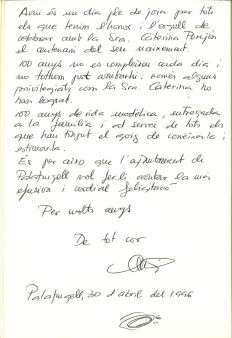 Avui és un dia ple de joia per tots
els que tenim l'honor i l'orgull de
celebrar amb la Sra. Caterina
el centenari del seu naixement.
100 anys no es compleixen cada dia i
no tothom pot contarho, només alguns
privilegiats com la Sra. Caterina ho
han lograt.
100 anys de vida modèlica, entregada
a la família i al servei de tots els
que han tingut el goig de conèixerla i
estimarla.
És per això que l'ajuntament de
Palafrugell vol ferli la més
efusiva i cordial felicitació
Per molts anys
De tot cor
Palafrugell, 30 d'abril del 1996